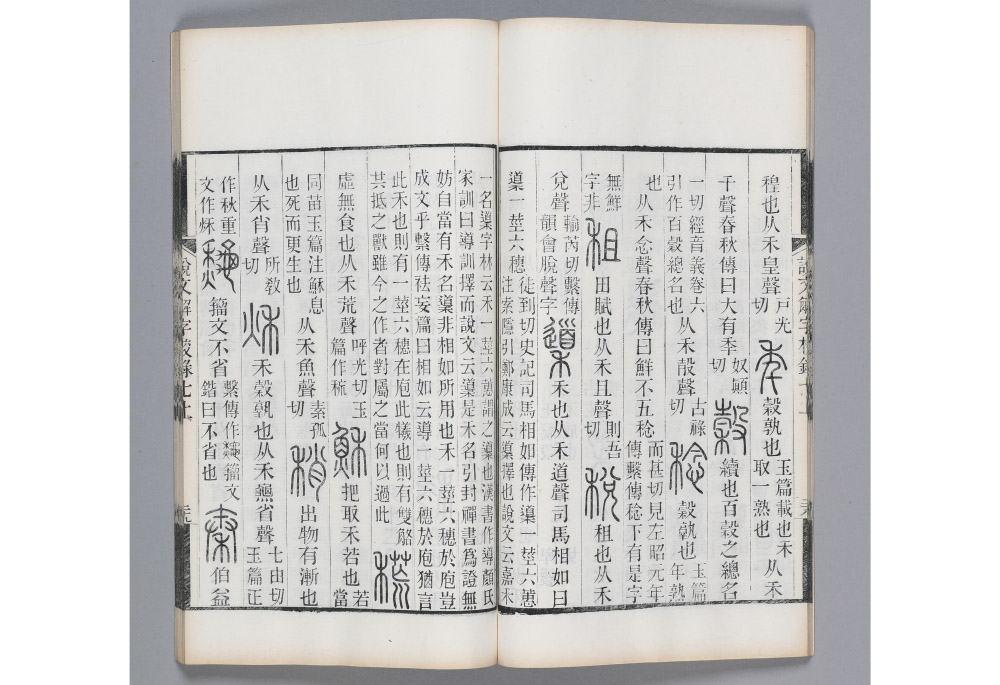 程也从禾皇聲 戶光切 秊 穀孰也 玉篇載也禾取一熟也 从禾
千聲春秋傳曰大有季 奴顛切 穀 續也百穀之總名
一切經音義卷六引作百穀總名也 从禾㱿聲 古祿切 稔 穀孰也 玉篇年熟
也 从禾念聲春秋傳曰鮮不五稔 而甚切見左昭元年傳繫傳稔下有是字
無鮮字非 租 田賦也从禾且聲 則吾切 稅 租也从禾
兌聲 輸芮切繫傳韻會脫聲字 䆃 禾也从禾道聲司馬相如曰
䆃一莖六穗 徒到切史記司馬相如傳作䆃一莖六穗注索隱引鄭康成云䆃擇也說文云嘉禾
一名䆃字林云禾一莖六穗謂之䆃也漢書作導顏氏
家訓曰導訓擇而說文云䆃是禾名引封禪書爲證無
妨自當有禾名䆃非相如所用也禾一莖六穗於庖豈
成文乎繫傳祛妄篇曰相如云導一莖六穗於庖猶言
此禾也則有一莖六穗在庖此犧也則有雙觡
共抵之獸雖今之作者對屬之當何以過此
虛無食也从禾荒聲 呼光切玉篇作 穌 把取禾若也 若當
同苗玉篇注穌息也死而更生也 从禾魚聲 素孤切 稍 出物有漸也
从禾肖聲 所敎切 秌 禾穀孰也从禾𤒅省聲 七由切玉篇正
作秋重文作秌 籒文不省 繫傳作籒文鍇曰不省也 秦 伯益
說文解字校錄七上